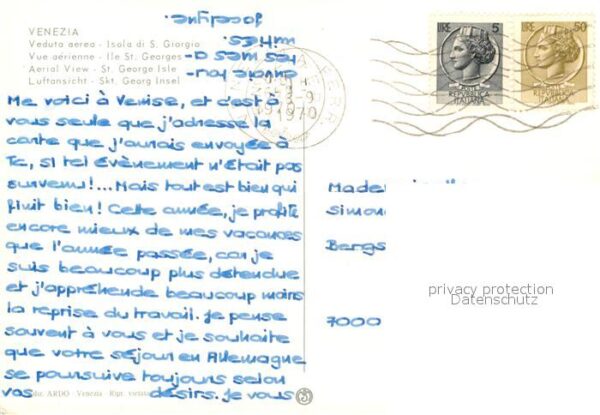 VENEZIA
Veduta aerea - Isola di S. Giorgio
Vue aérienne - Ile St. Georges
Aerial View - St. George Isle
Luftansicht - Skt. Georg Insel
LIRE 5
LIRE 50
1970
Me voici à Venise, et c'est à
vous seule que j'adresse la
carte que j'aurais envoyée à
Tc, si tel évènement n'était pas
survenu!... Mais tout est bien qui
finit bien! Cette année, je profite
encore mieux de mes vacances
que l'année passée, car je
suis beaucoup plus détendue
et j'appréhende beaucoup moins
la reprise du travail. Je pense
souvent à vous et je souhaite
que votre séjour en Allemagne
se poursuive toujours selon
vos désirs. Je vous
Jocelyne.
Made
Simon
Bergs
7000
privacy protection
Datenschutz
ARDO - Venezia - Ripr. vietata